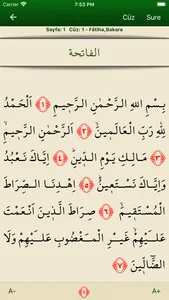 7:53 PM
Sayfa: 1 Cüz: 1 - Fâtiha,Bakara
Cüz
Sure
الفاتحة
بِسْمِ اللهِ الرَّحْمٰنِ الرَّحِيمِ ﴿١﴾ اَلْحَمْدُ
لِلّٰهِ رَبِّ الْعَالَمِينَۙ ﴿٢﴾ اَلرَّحْمٰنِ الرَّحِيمِۙ
﴿٣﴾ مَالِكِ يَوْمِ الدِّينِۜ ﴿٤﴾ اِيَّاكَ نَعْبُدُ
وَاِيَّاكَ نَسْتَعِينُۜ ﴿٥﴾ اِهْدِنَا الصِّرَاطَ
الْمُسْتَقِيمَۙ ﴿٦﴾ صِرَاطَ الَّذِينَ اَنْعَمْتَ
عَلَيْهِمْۙ غَيْرِ الْمَغْضُوبِ عَلَيْهِمْ وَلَا
الضَّٓالِّينَ ﴿٧﴾
A-
١
A+